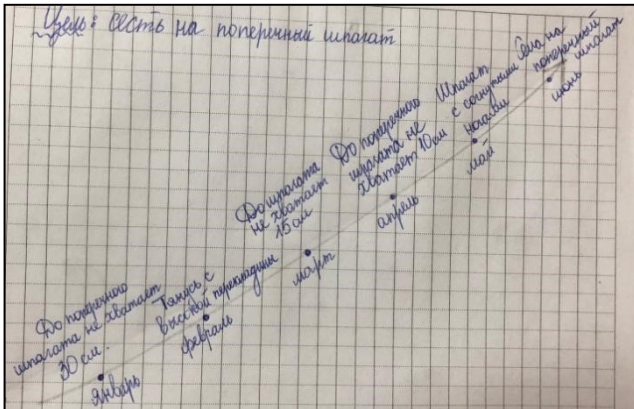 Цель: сесть на поперечный шпагат
До поперечного
шпагата не хватает
30 см.
январь
Тянусь с
высокой перекладины
февраль
До шпагата
не хватает
15 см
март
До поперечного
шпагата не
хватает 10 см
апрель
Шпагат
с согнутыми
ногами
май
Села на
поперечный
шпагат
июнь